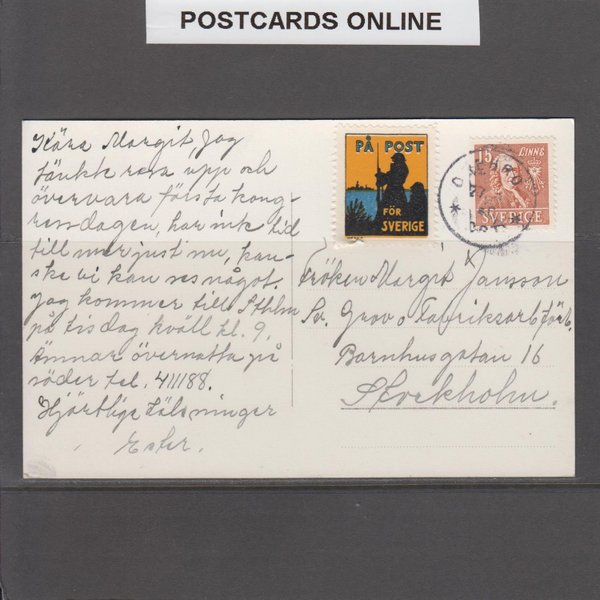 POSTCARDS ONLINE
Kära Margit, Jag
tänkt resa upp och
övervara första kong-
ressdagen, har ink tid
till mer just nu, kan-
ske vi kan ses något.
Jag kommer till Sthlm
på tisdag kväll kl. 9,
ämnar övernatta på
söder tel. 411188.
Hjärtliga hälsningar
Ester.
PÅ POST
FÖR
SVERIGE
15
LINNÉ
SVERIGE
ÖREBRO
Fröken Margit Jansson
Sv. Grov o Fabriksarb förb.
Barnhusgatan 16
Stockholm.